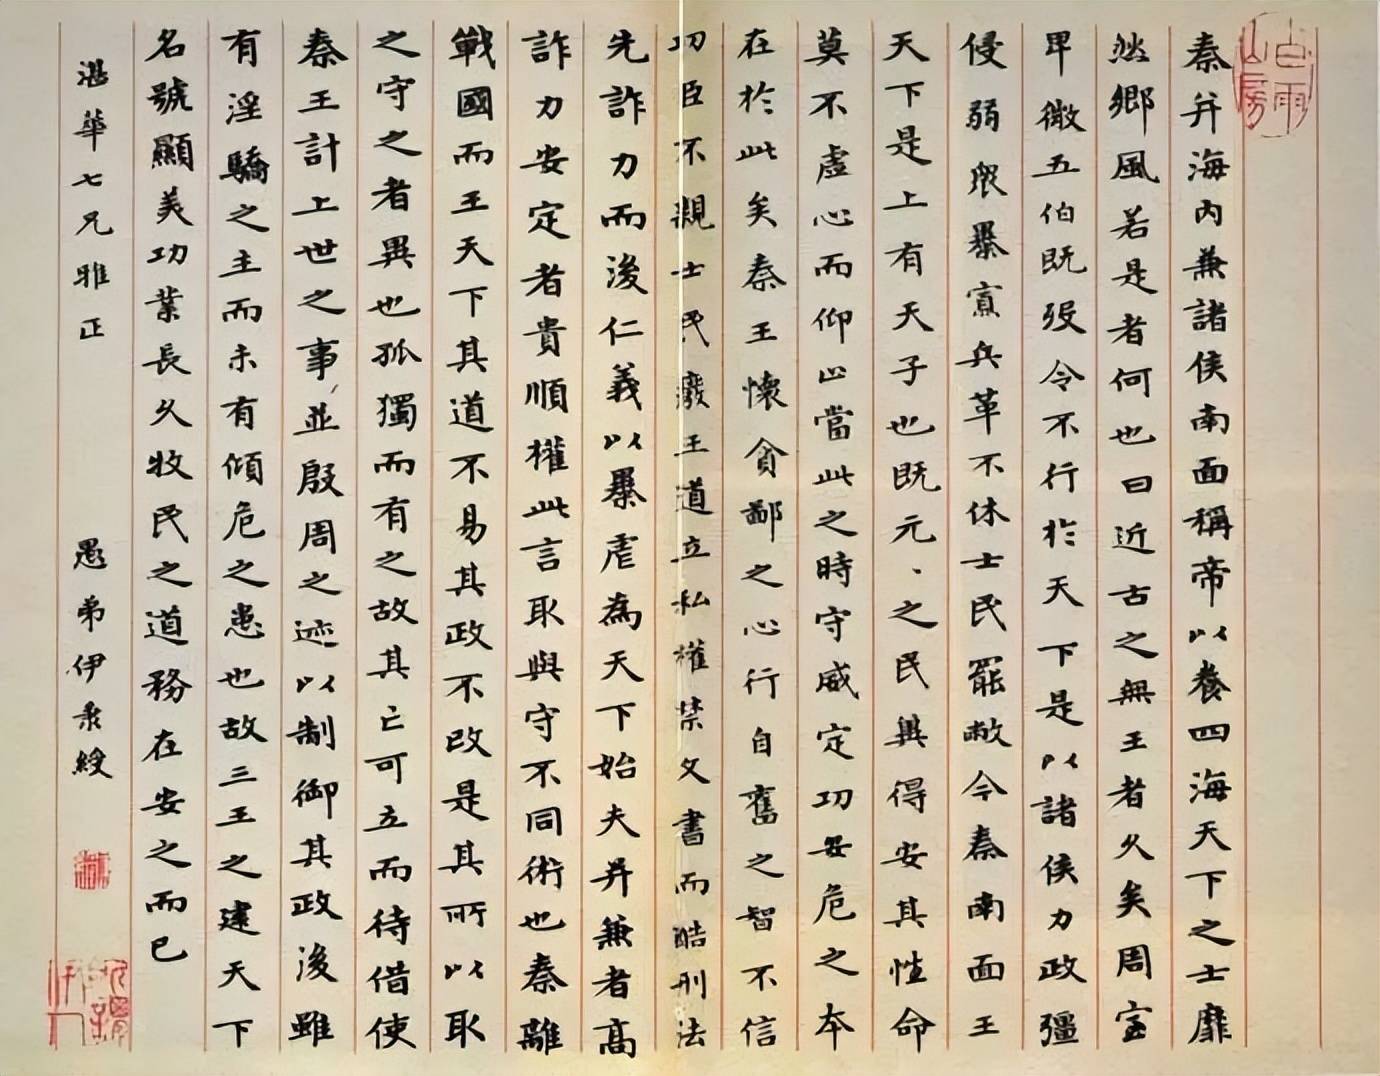 秦并海內兼諸侯南面稱帝以養四海天下之士靡
然鄉風若是者何也曰近古之無王者久矣周室
卑微五伯既歿令不行於天下是以諸侯力政彊
侵弱眾暴寡兵革不休士民罷敝今秦南面王
天下是上有天子也既元、之民兾得安其性命
莫不虛心而仰上當此之時守威定功安危之本
在於此矣秦王懷貪鄙之心行自奮之智不信
功臣不親士民廢王道立私權禁文書而酷刑法
先詐力而後仁義以暴虐為天下始夫并兼者高
詐力安定者貴順權此言取與守不同術也秦離
戰國而王天下其道不易其政不改是其所以取
之守之者異也孤獨而有之故其亡可立而待借使
秦王計上世之事並殷周之迹以制御其政後雖
有淫驕之主而未有傾危之患也故三王之建天下
名號顯美功業長久牧民之道務在安之而已
湛華七兄雅正
愚弟伊秉綬